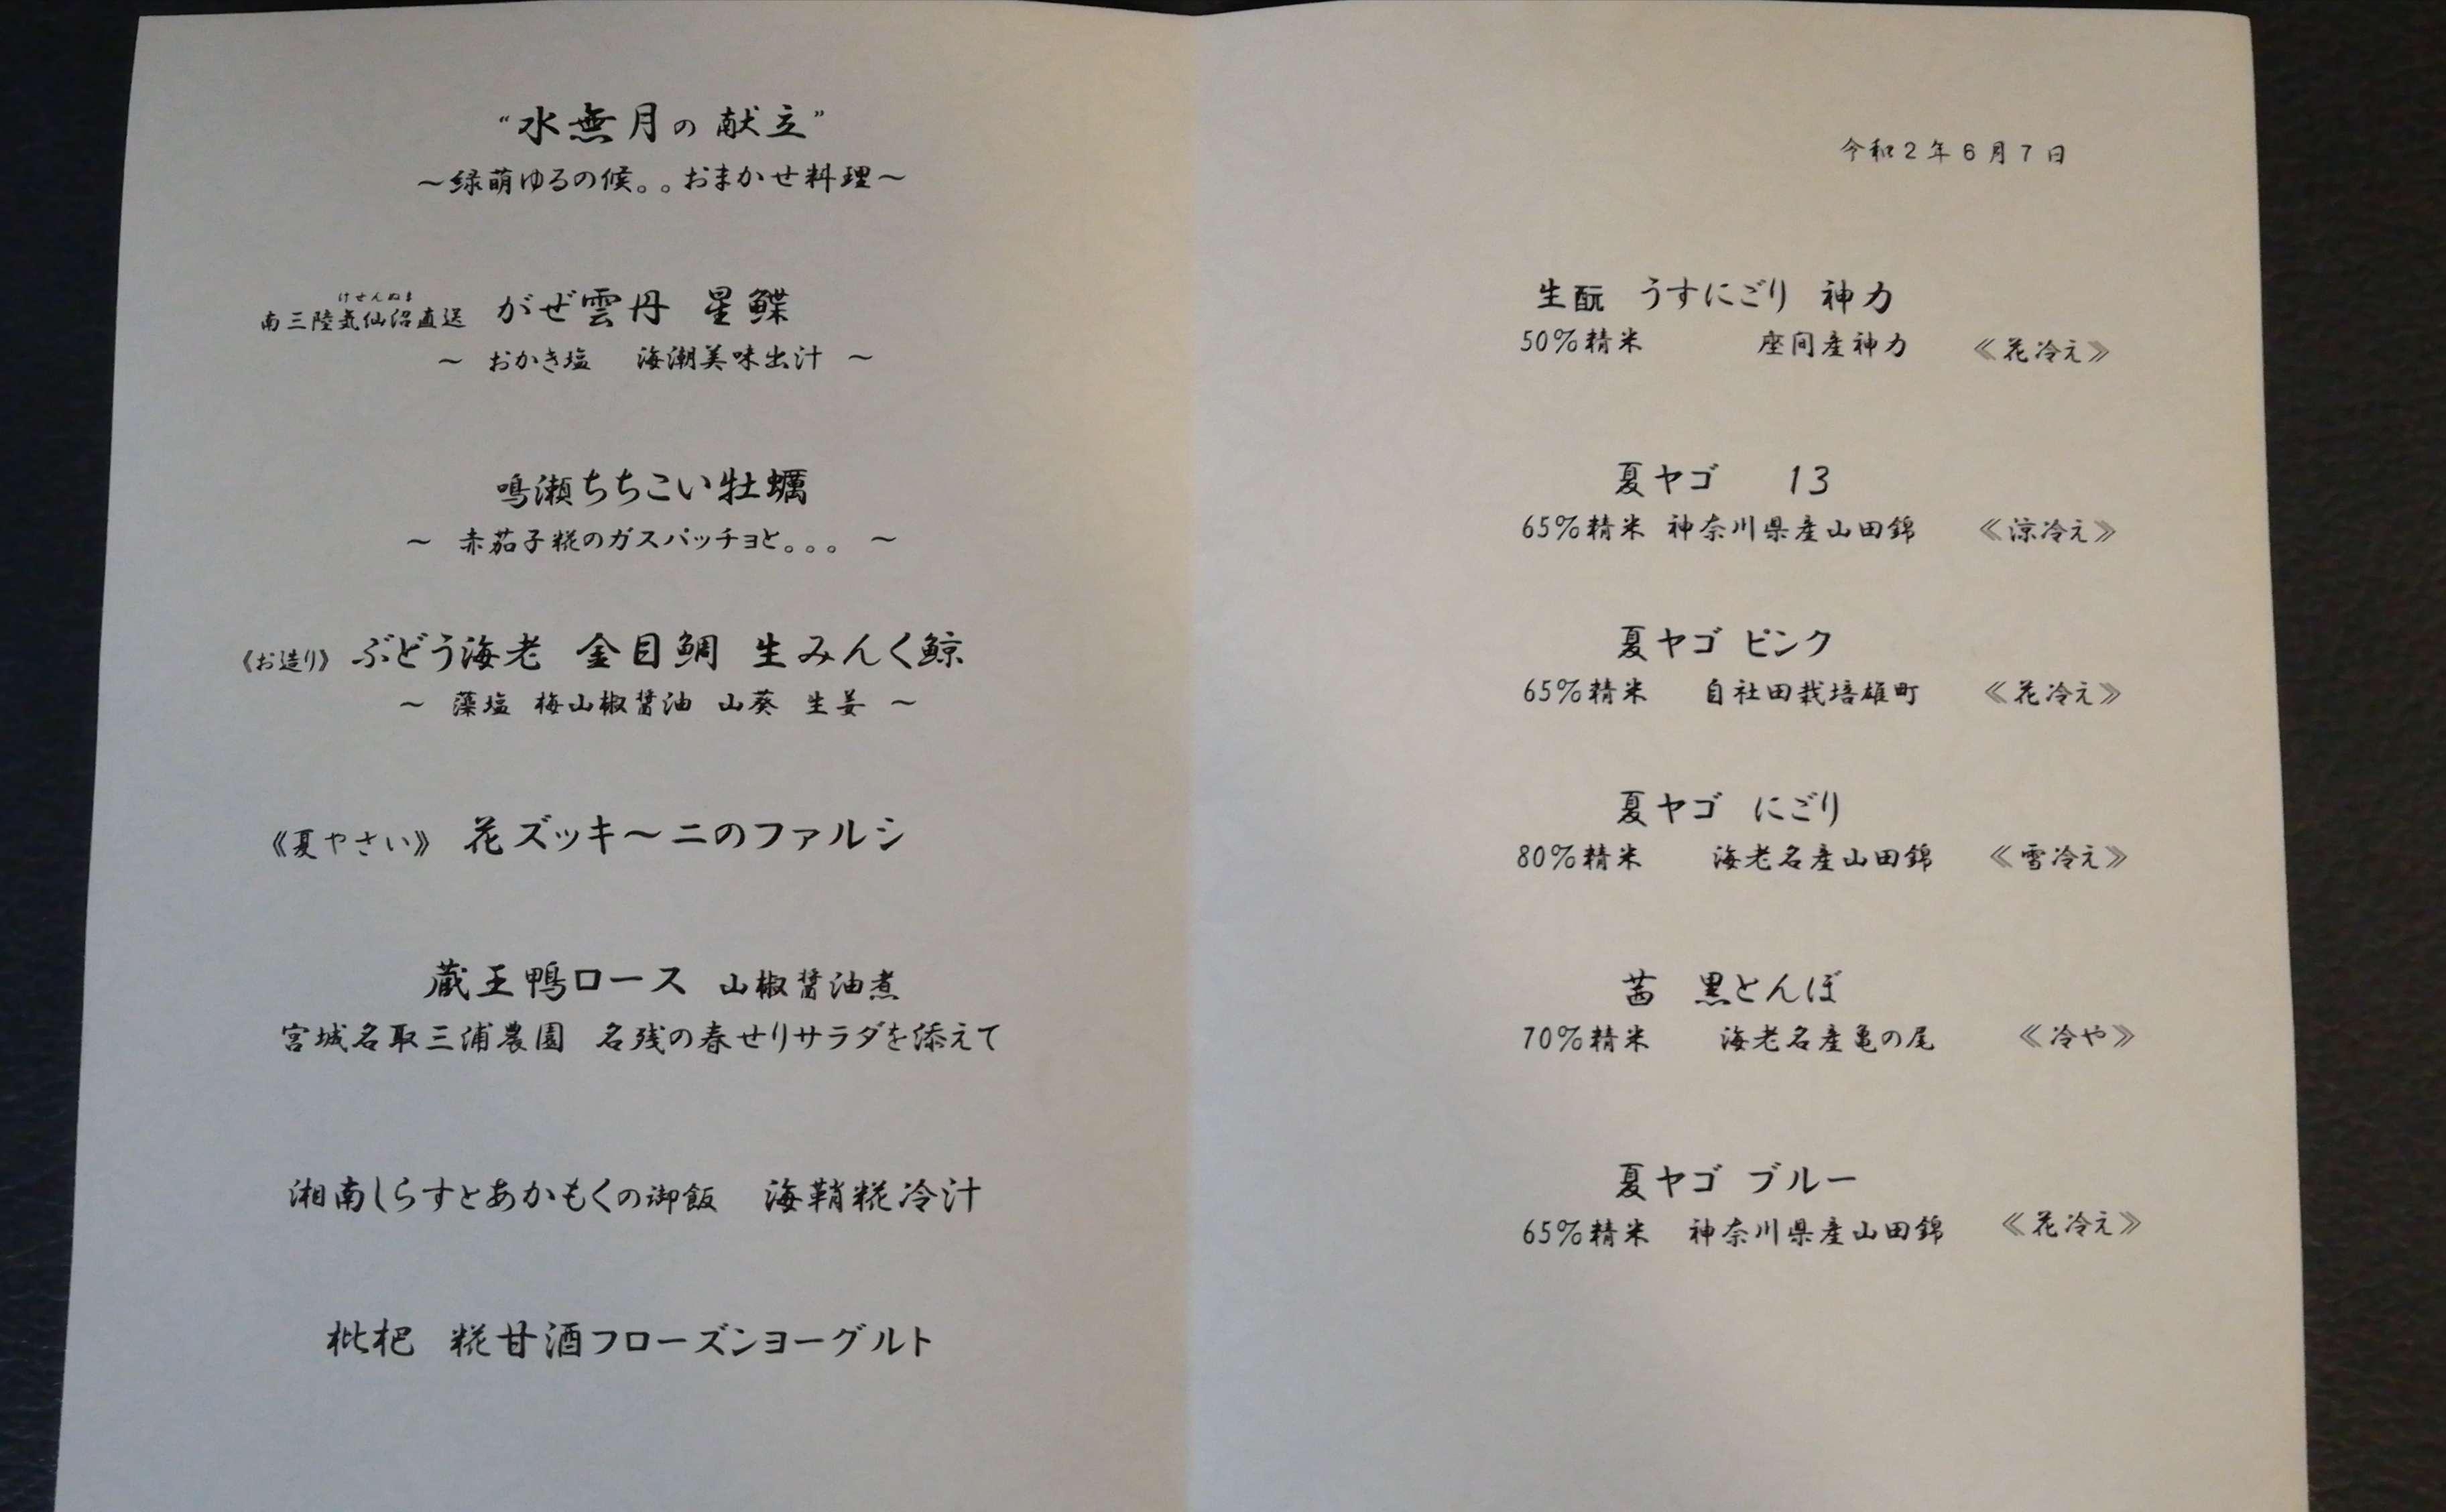 “水無月の献立”
～緑萌ゆるの候。。おまかせ料理～
けせんぬま
南三陸気仙沼直送 がぜ雲丹 星鰈
～ おかき塩 海潮美味出汁 ～
鳴瀬ちちこい牡蠣
～ 赤茄子糀のガスパッチョと。。。 ～
《お造り》 ぶどう海老 金目鯛 生みんく鯨
～ 藻塩 梅山椒醤油 山葵 生姜 ～
《夏やさい》 花ズッキ～ニのファルシ
蔵王鴨ロース 山椒醤油煮
宮城名取三浦農園 名残の春せりサラダを添えて
湘南しらすとあかもくの御飯 海鞘糀冷汁
枇杷 糀甘酒フローズンヨーグルト
令和2年6月7日
生酛 うすにごり 神力
50%精米 座間産神力 《花冷え》
夏ヤゴ 13
65%精米 神奈川県産山田錦 《涼冷え》
夏ヤゴ ピンク
65%精米 自社田栽培雄町 《花冷え》
夏ヤゴ にごり
80%精米 海老名産山田錦 《雪冷え》
茜 黒とんぼ
70%精米 海老名産亀の尾 《冷や》
夏ヤゴ ブルー
65%精米 神奈川県産山田錦 《花冷え》